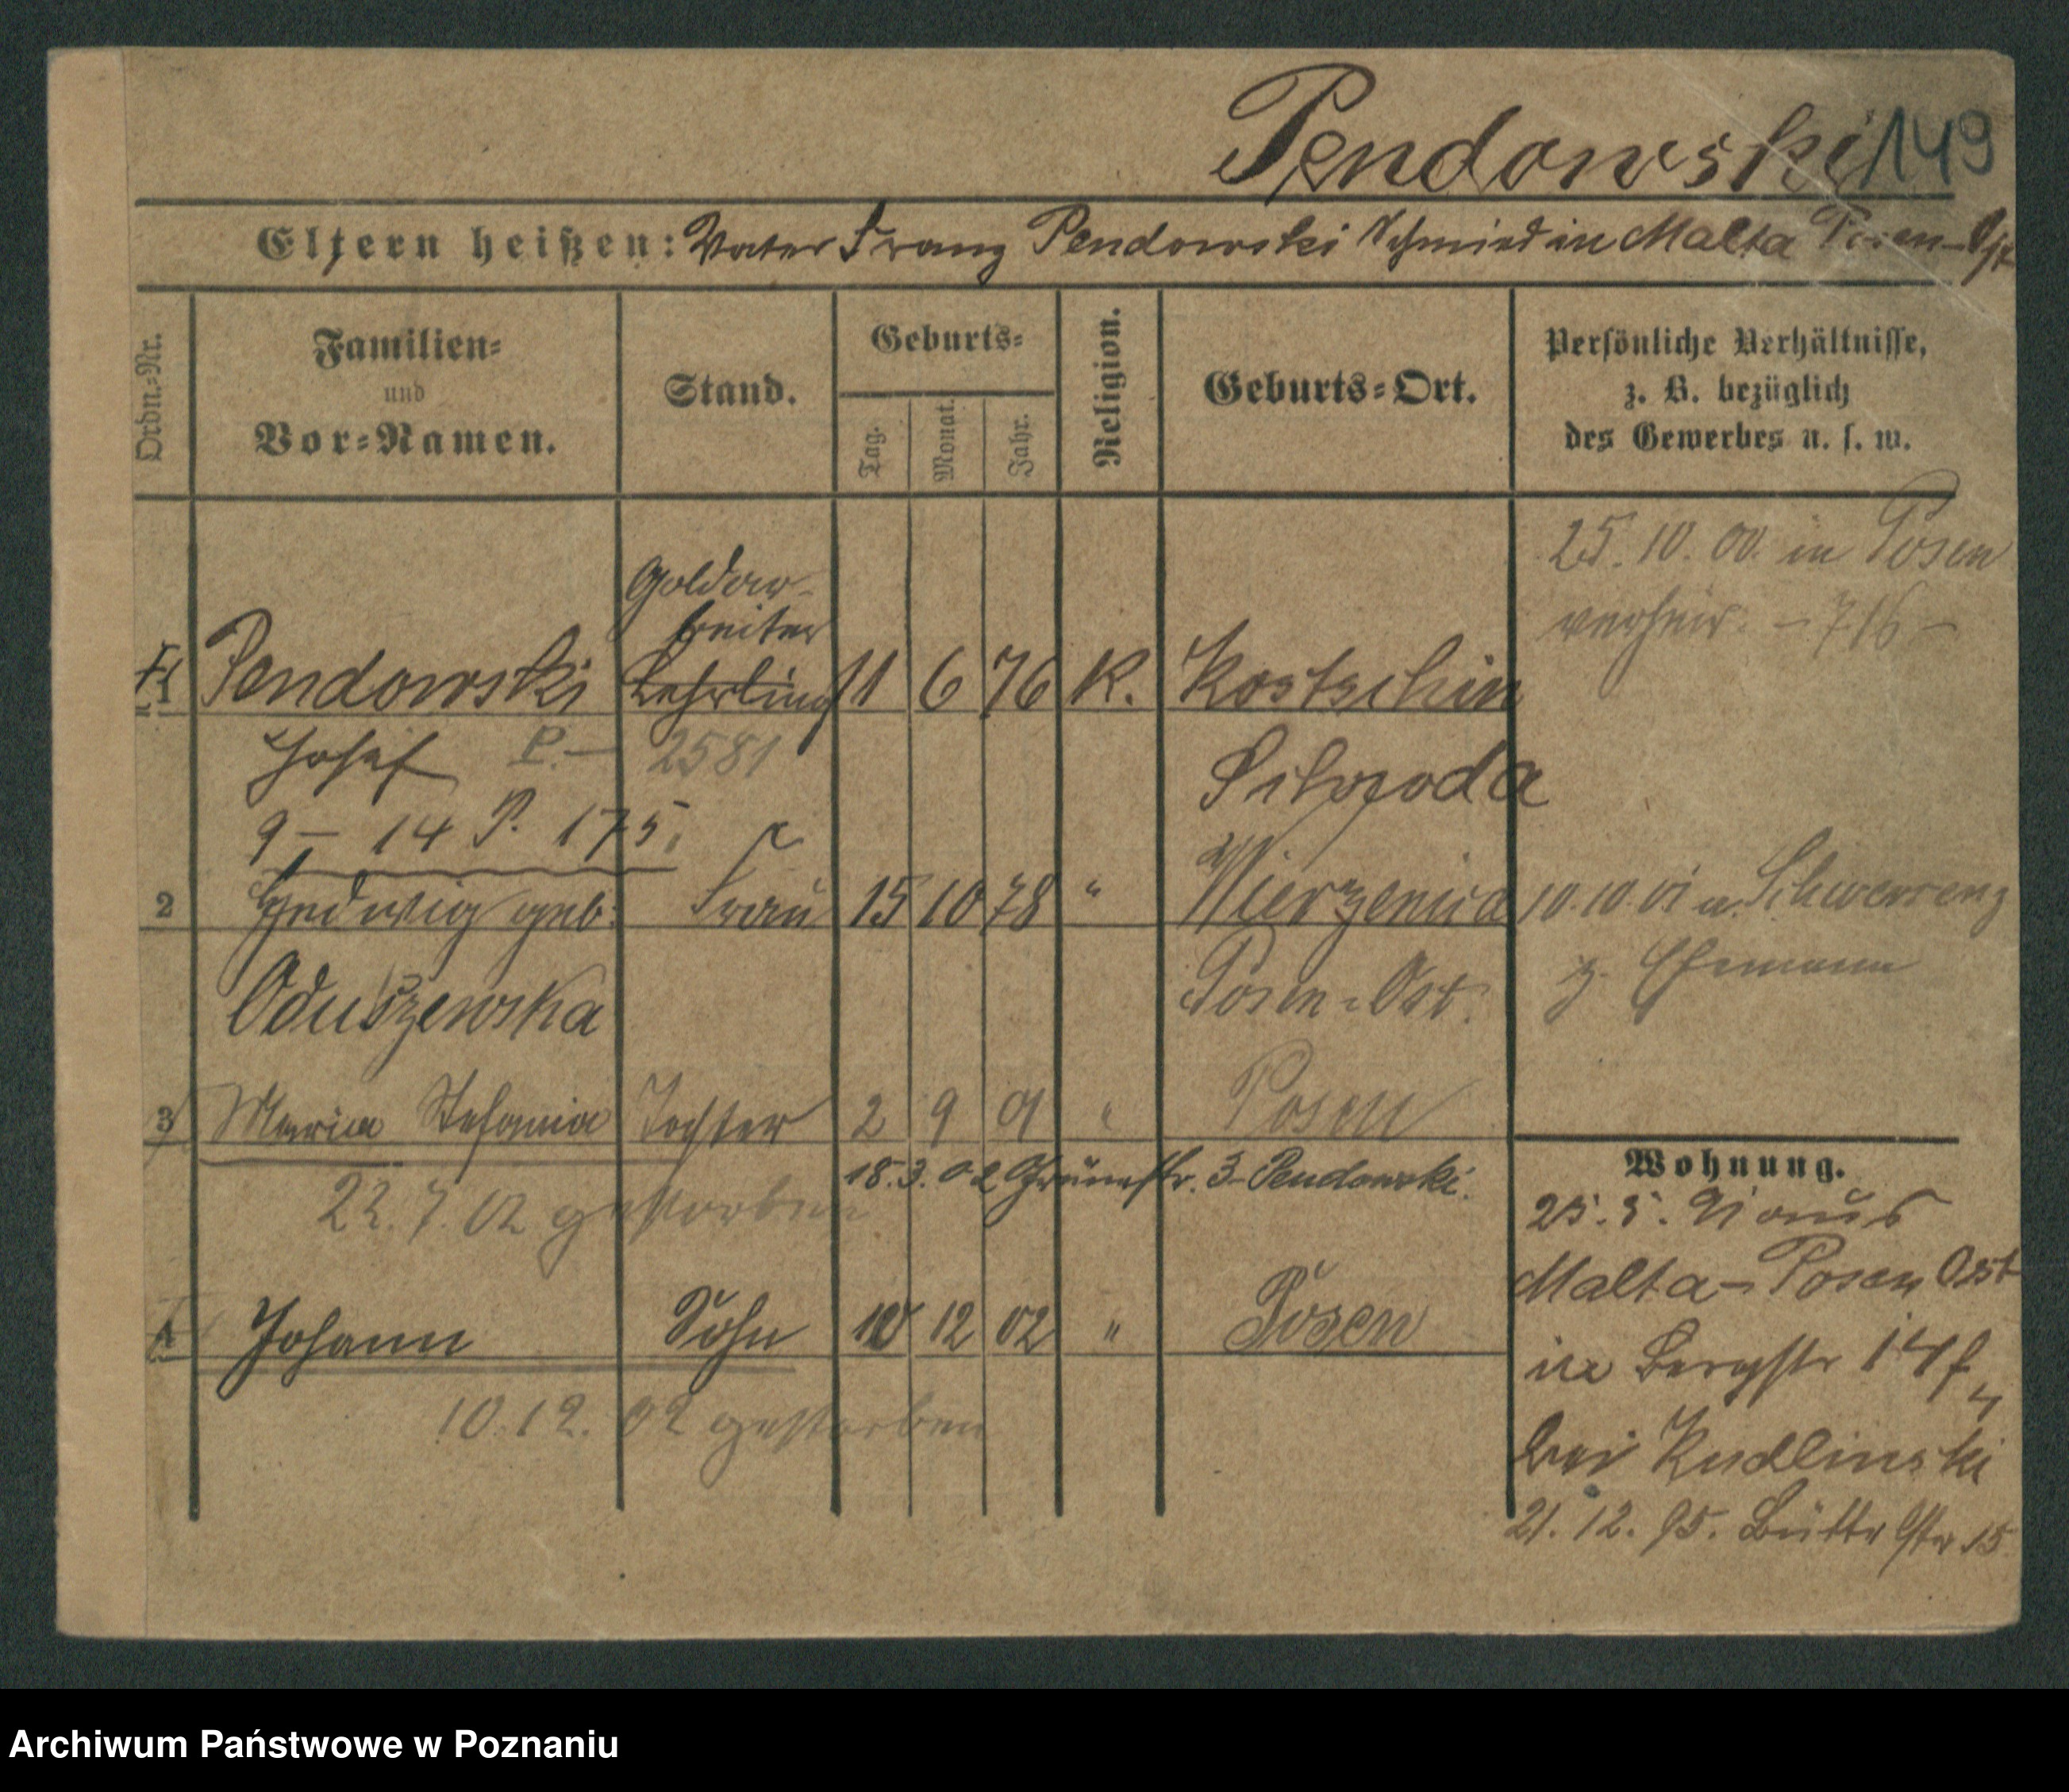 Pendowski 149
Eltern heißen: Vater Franz Pendowski Schmied in Malta Posen-Ost
Ordn.-Nr.
Familien-
und
Vor-Namen.
Stand.
Geburts-
Tag.
Monat.
Jahr.
Religion.
Geburts-Ort.
Persönliche Verhältnisse,
z. B. bezüglich
des Gewerbes u. s. w.
25. 10. 00. in Posen
verheir. - 716 -
Goldar-
beiter
1 Pendowski Lehrling 11 6 76 K. Kostschin
Josef P. - 2581
Schroda
9 - 14 P. 175.
2 Hedwig geb. Frau 15 10 78 " Wierzenica 10.10.01 a. Schwersenz
Oduszewska Posen-Ost. z. Ehemann
3 Maria Stefania Tochter 2 9 01 " Posen
18.3.02 Grünestr. 3 - Pendowski.
22.7.02 gestorben
4 Johann Sohn 10 12 02 " Posen
10.12.02 gestorben
Wohnung.
25.5.91 aus
Malta-Posen Ost
in Bergstr 14
bei Kudlinski
21.12.95. Büttelstr 15
Archiwum Państwowe w Poznaniu